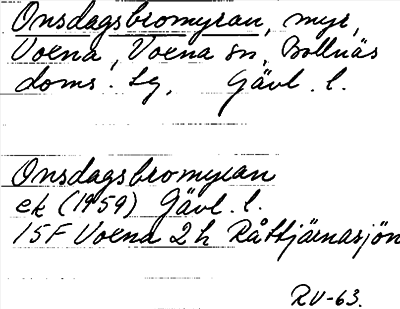 Onsdagsbromyran, myr,
Voxna, Voxna sn, Bollnäs
doms. lg, Gävl. l.
Onsdagsbromyran
ek (1959) Gävl. l.
15F Voxna 2h Råttjärnasjön
RV-63.